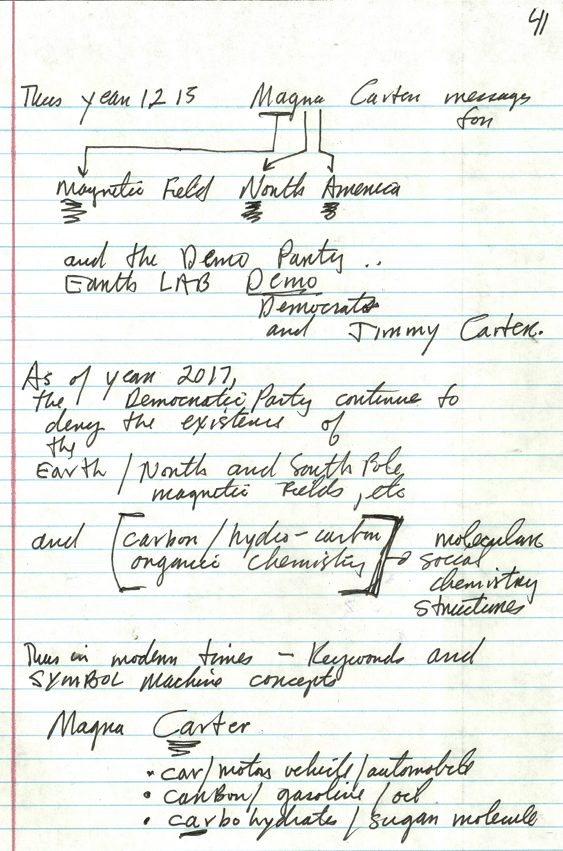 41
Thus year 1215 Magna Carter messages
for
Magnetic Field North America
and the Demo Party ..
Earth LAB Demo
Democrats
and Jimmy Carter.
As of year 2017,
the Democratic Party continue to
deny the existence of
the
Earth / North and South Pole
magnetic Fields, etc
and [carbon / hydro-carbon
organic chemistry] molecular
social
chemistry
structures
Thus in modern times - Keywords and
SYMBOL Machine concepts
Magna Carter
• car / motor vehicle / automobile
• carbon / gasoline / oil
• carbohydrates / sugar molecule